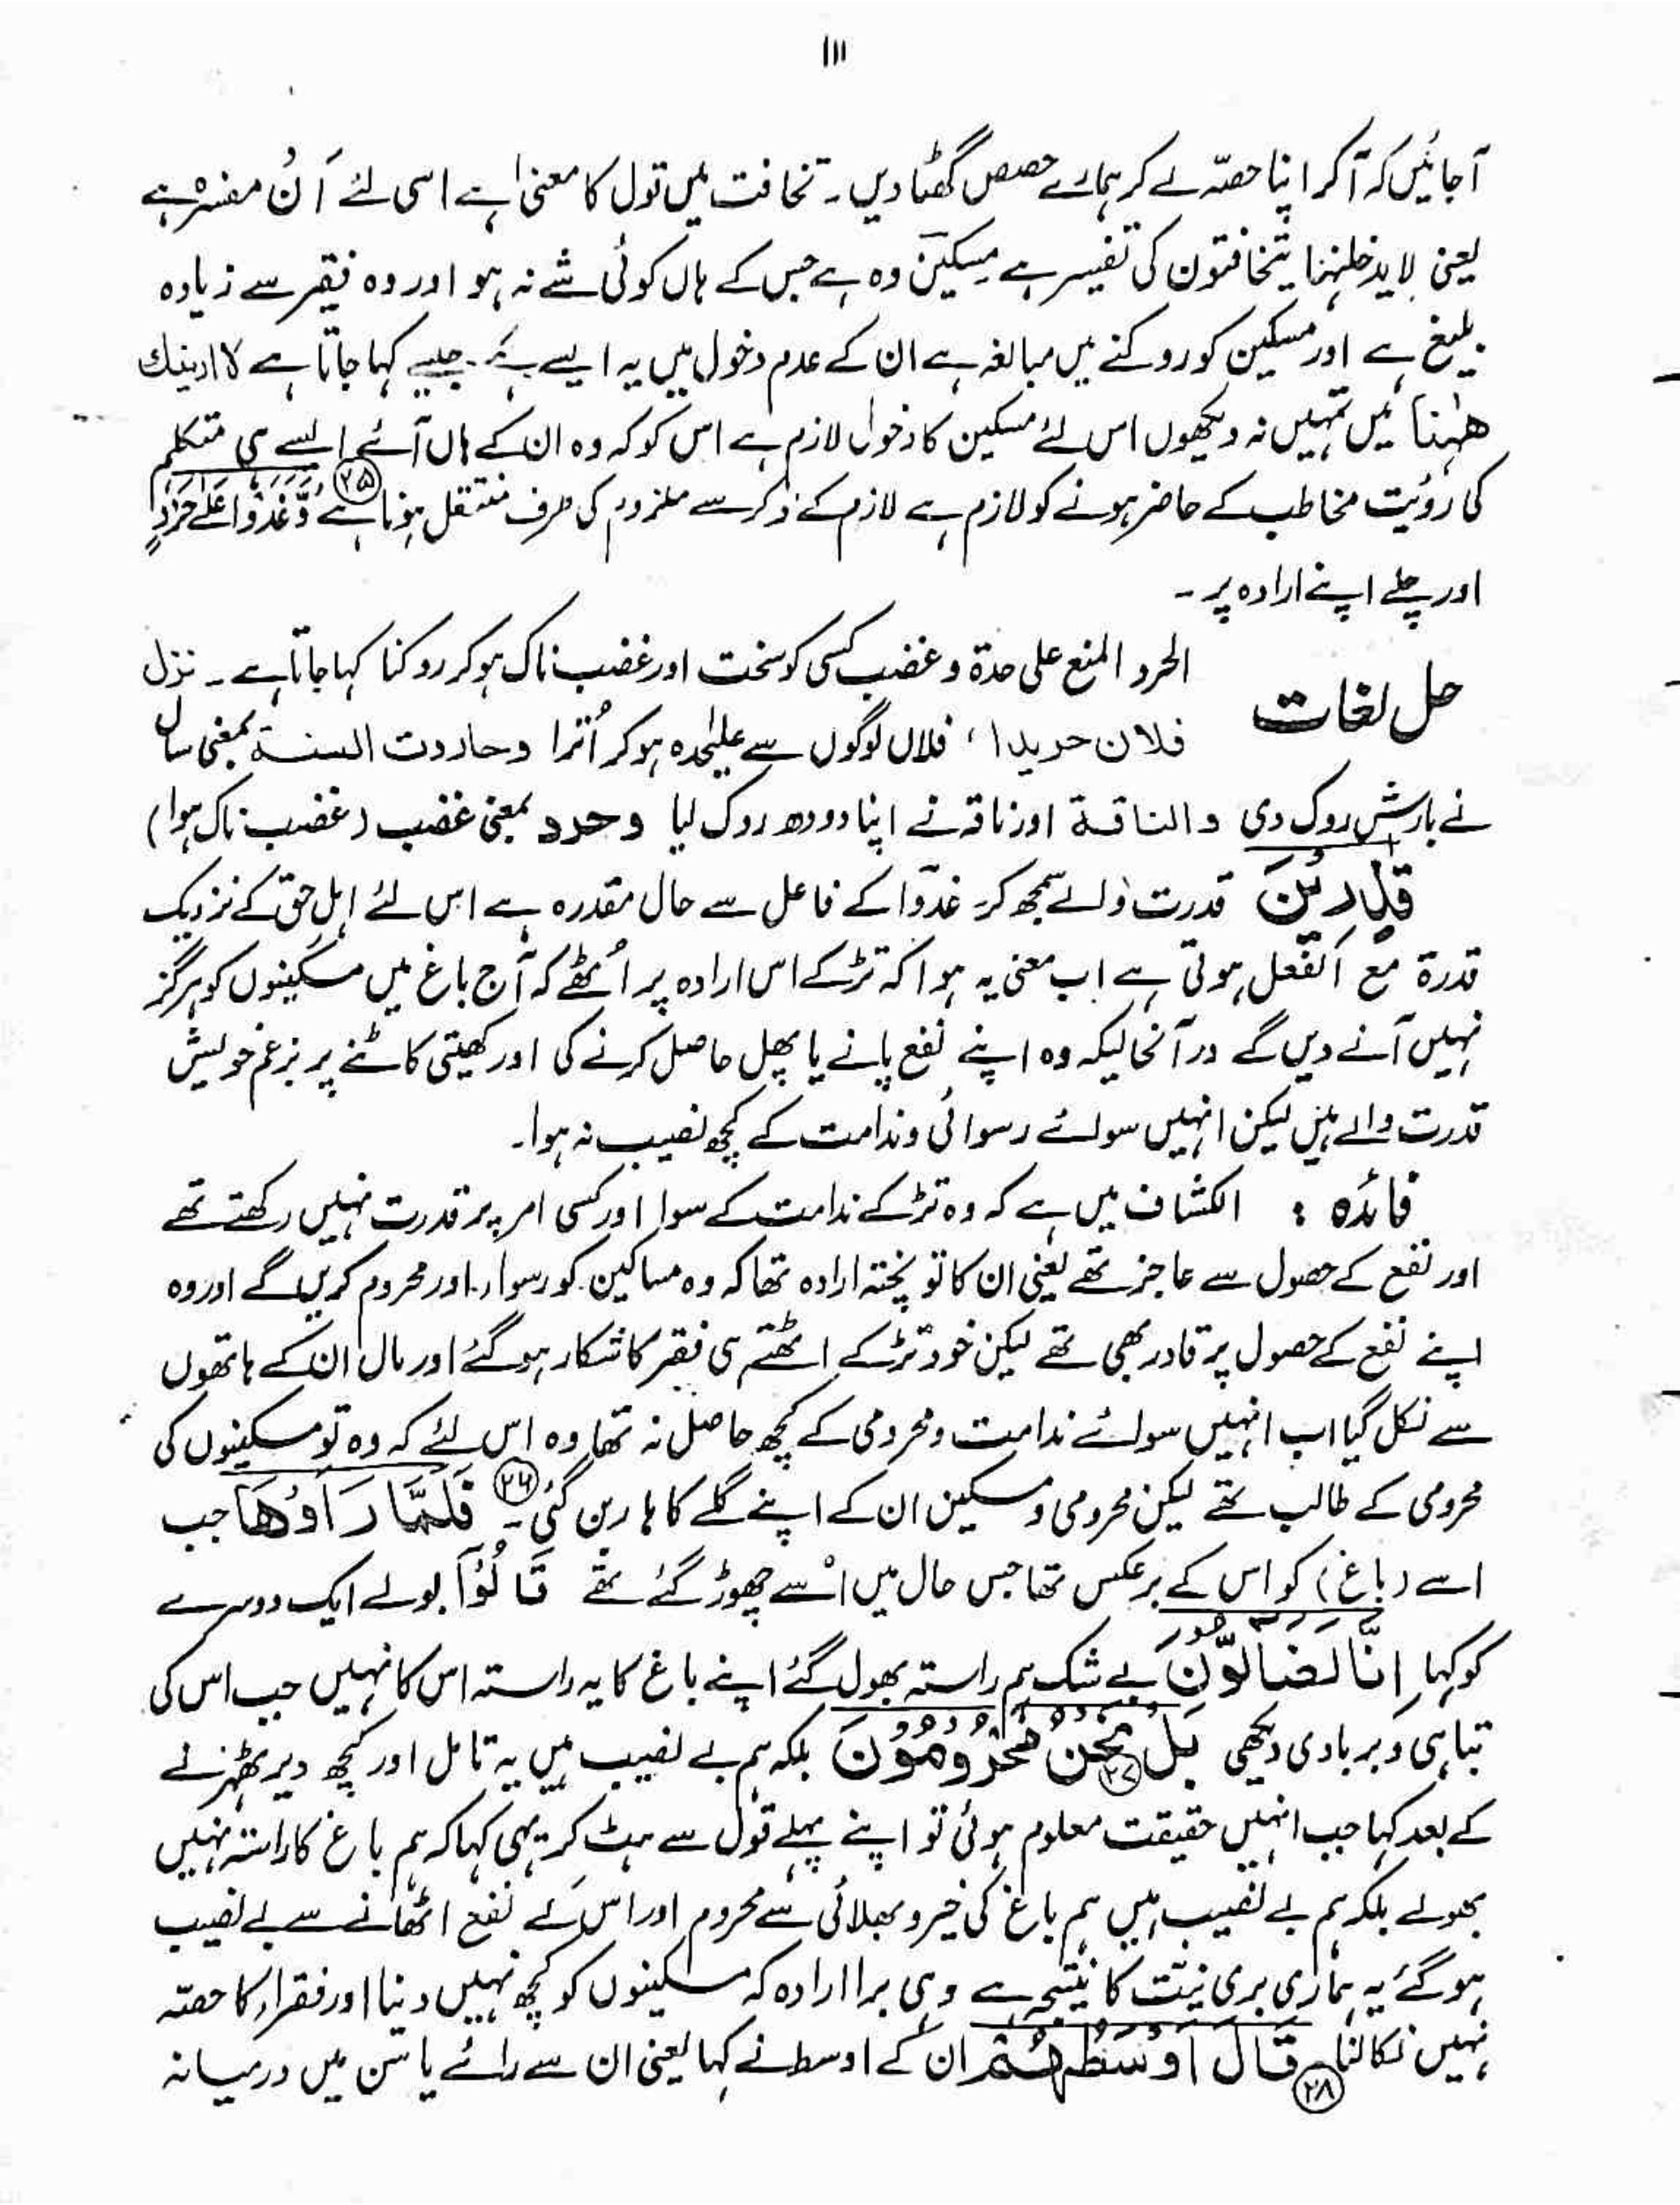 ١١١
آجائیں کہ آکر اپنا حصّہ لے کر ہمارے حصص گھٹا دیں ۔ تخافت میں قول کا معنیٰ ہے اسی لئے اَنْ مفسرہ ہے
یعنی لایدخلنہا یتخافتون کی تفسیر ہے مسکین وہ ہے جس کے ہاں کوئی شے نہ ہو اور وہ فقیر سے زیادہ
بلیغ ہے اور مسکین کو روکنے میں مبالغہ ہے ان کے عدم دخول میں یہ ایسے ہے جیسے کہا جاتا ہے لا ارینك
ھٰہنا میں تمہیں نہ دیکھوں اس لئے مسکین کا دخول لازم ہے اس کو کہ وہ ان کے ہاں آئے ایسے ہی متکلم
کی رؤیت مخاطب کے حاضر ہونے کو لازم ہے لازم کے ذکر سے ملزوم کی طرف منتقل ہونا ہے ۲۵ وَّغَدَوْا عَلٰی حَرْدٍ
اور چلے اپنے ارادہ پر ۔
حل لغات الحرد المنع علی حدۃ و غضب کسی کو سخت اور غضب ناک ہو کر روکنا کہا جاتا ہے ۔ نزل
فلان حریدا ، فلاں لوگوں سے علیٰحدہ ہو کر اُترا وحاردت السنۃ بمعنی سال
نے بارش روک دی والناقۃ اور ناقہ نے اپنا دودھ روک لیا وحرد بمعنی غضب (غضب ناک ہوا)
قٰدِرِیْنَ قدرت والے سمجھ کر غدوا کے فاعل سے حال مقدرہ ہے اس لئے اہل حق کے نزدیک
قدرۃ مع الفعل ہوتی ہے اب معنی یہ ہوا کہ تڑکے اس ارادہ پر اُٹھے کہ آج باغ میں مسکینوں کو ہرگز
نہیں آنے دیں گے درآنحالیکہ وہ اپنے نفع پانے یا پھل حاصل کرنے کی اور کھیتی کاٹنے پر بزعم خویش
قدرت والے ہیں لیکن انہیں سوائے رسوائی و ندامت کے کچھ نصیب نہ ہوا۔
فائدہ : الکشاف میں ہے کہ وہ تڑکے ندامت کے سوا اور کسی امر پر قدرت نہیں رکھتے تھے
اور نفع کے حصول سے عاجز تھے یعنی ان کا تو پختہ ارادہ تھا کہ وہ مساکین کو رسوا، اور محروم کریں گے اور وہ
اپنے نفع کے حصول پر قادر بھی تھے لیکن خود تڑکے اٹھتے ہی فقر کا شکار ہو گئے اور مال ان کے ہاتھوں
سے نکل گیا اب انہیں سوائے ندامت و محرومی کے کچھ حاصل نہ تھا وہ اس لئے کہ وہ تو مسکینوں کی
محرومی کے طالب تھے لیکن محرومی و مسکین ان کے اپنے گلے کا ہار بن گئی ۔ ۲۶ فَلَمَّا رَاَوْهَا جب
اسے (باغ) کو اس کے برعکس تھا جس حال میں اُسے چھوڑ گئے تھے قَالُوْٓا بولے ایک دوسرے
کو کہا اِنَّا لَضَآلُّوْنَ بے شک ہم راستہ بھول گئے اپنے باغ کا یہ راستہ اس کا نہیں جب اس کی
تباہی و بربادی دیکھی بَلْ نَحْنُ مَحْرُوْمُوْنَ ۲۷ بلکہ ہم بے نصیب ہیں یہ تامل اور کچھ دیر ٹھہرنے
کے بعد کہا جب انہیں حقیقت معلوم ہوئی تو اپنے پہلے قول سے ہٹ کر یہی کہا کہ ہم باغ کا راستہ نہیں
بھولے بلکہ ہم بے نصیب ہیں ہم باغ کی خیر و بھلائی سے محروم اور اس کے نفع اٹھانے سے بے نصیب
ہو گئے یہ ہماری بری نیّت کا نتیجہ ہے وہی برا ارادہ کہ مسکینوں کو کچھ نہیں دینا اور فقراء کا حصّہ
نہیں نکالنا ۲۸ قَالَ اَوْسَطُهُمْ ان کے اوسط نے کہا یعنی ان سے رائے یا سن میں درمیانہ